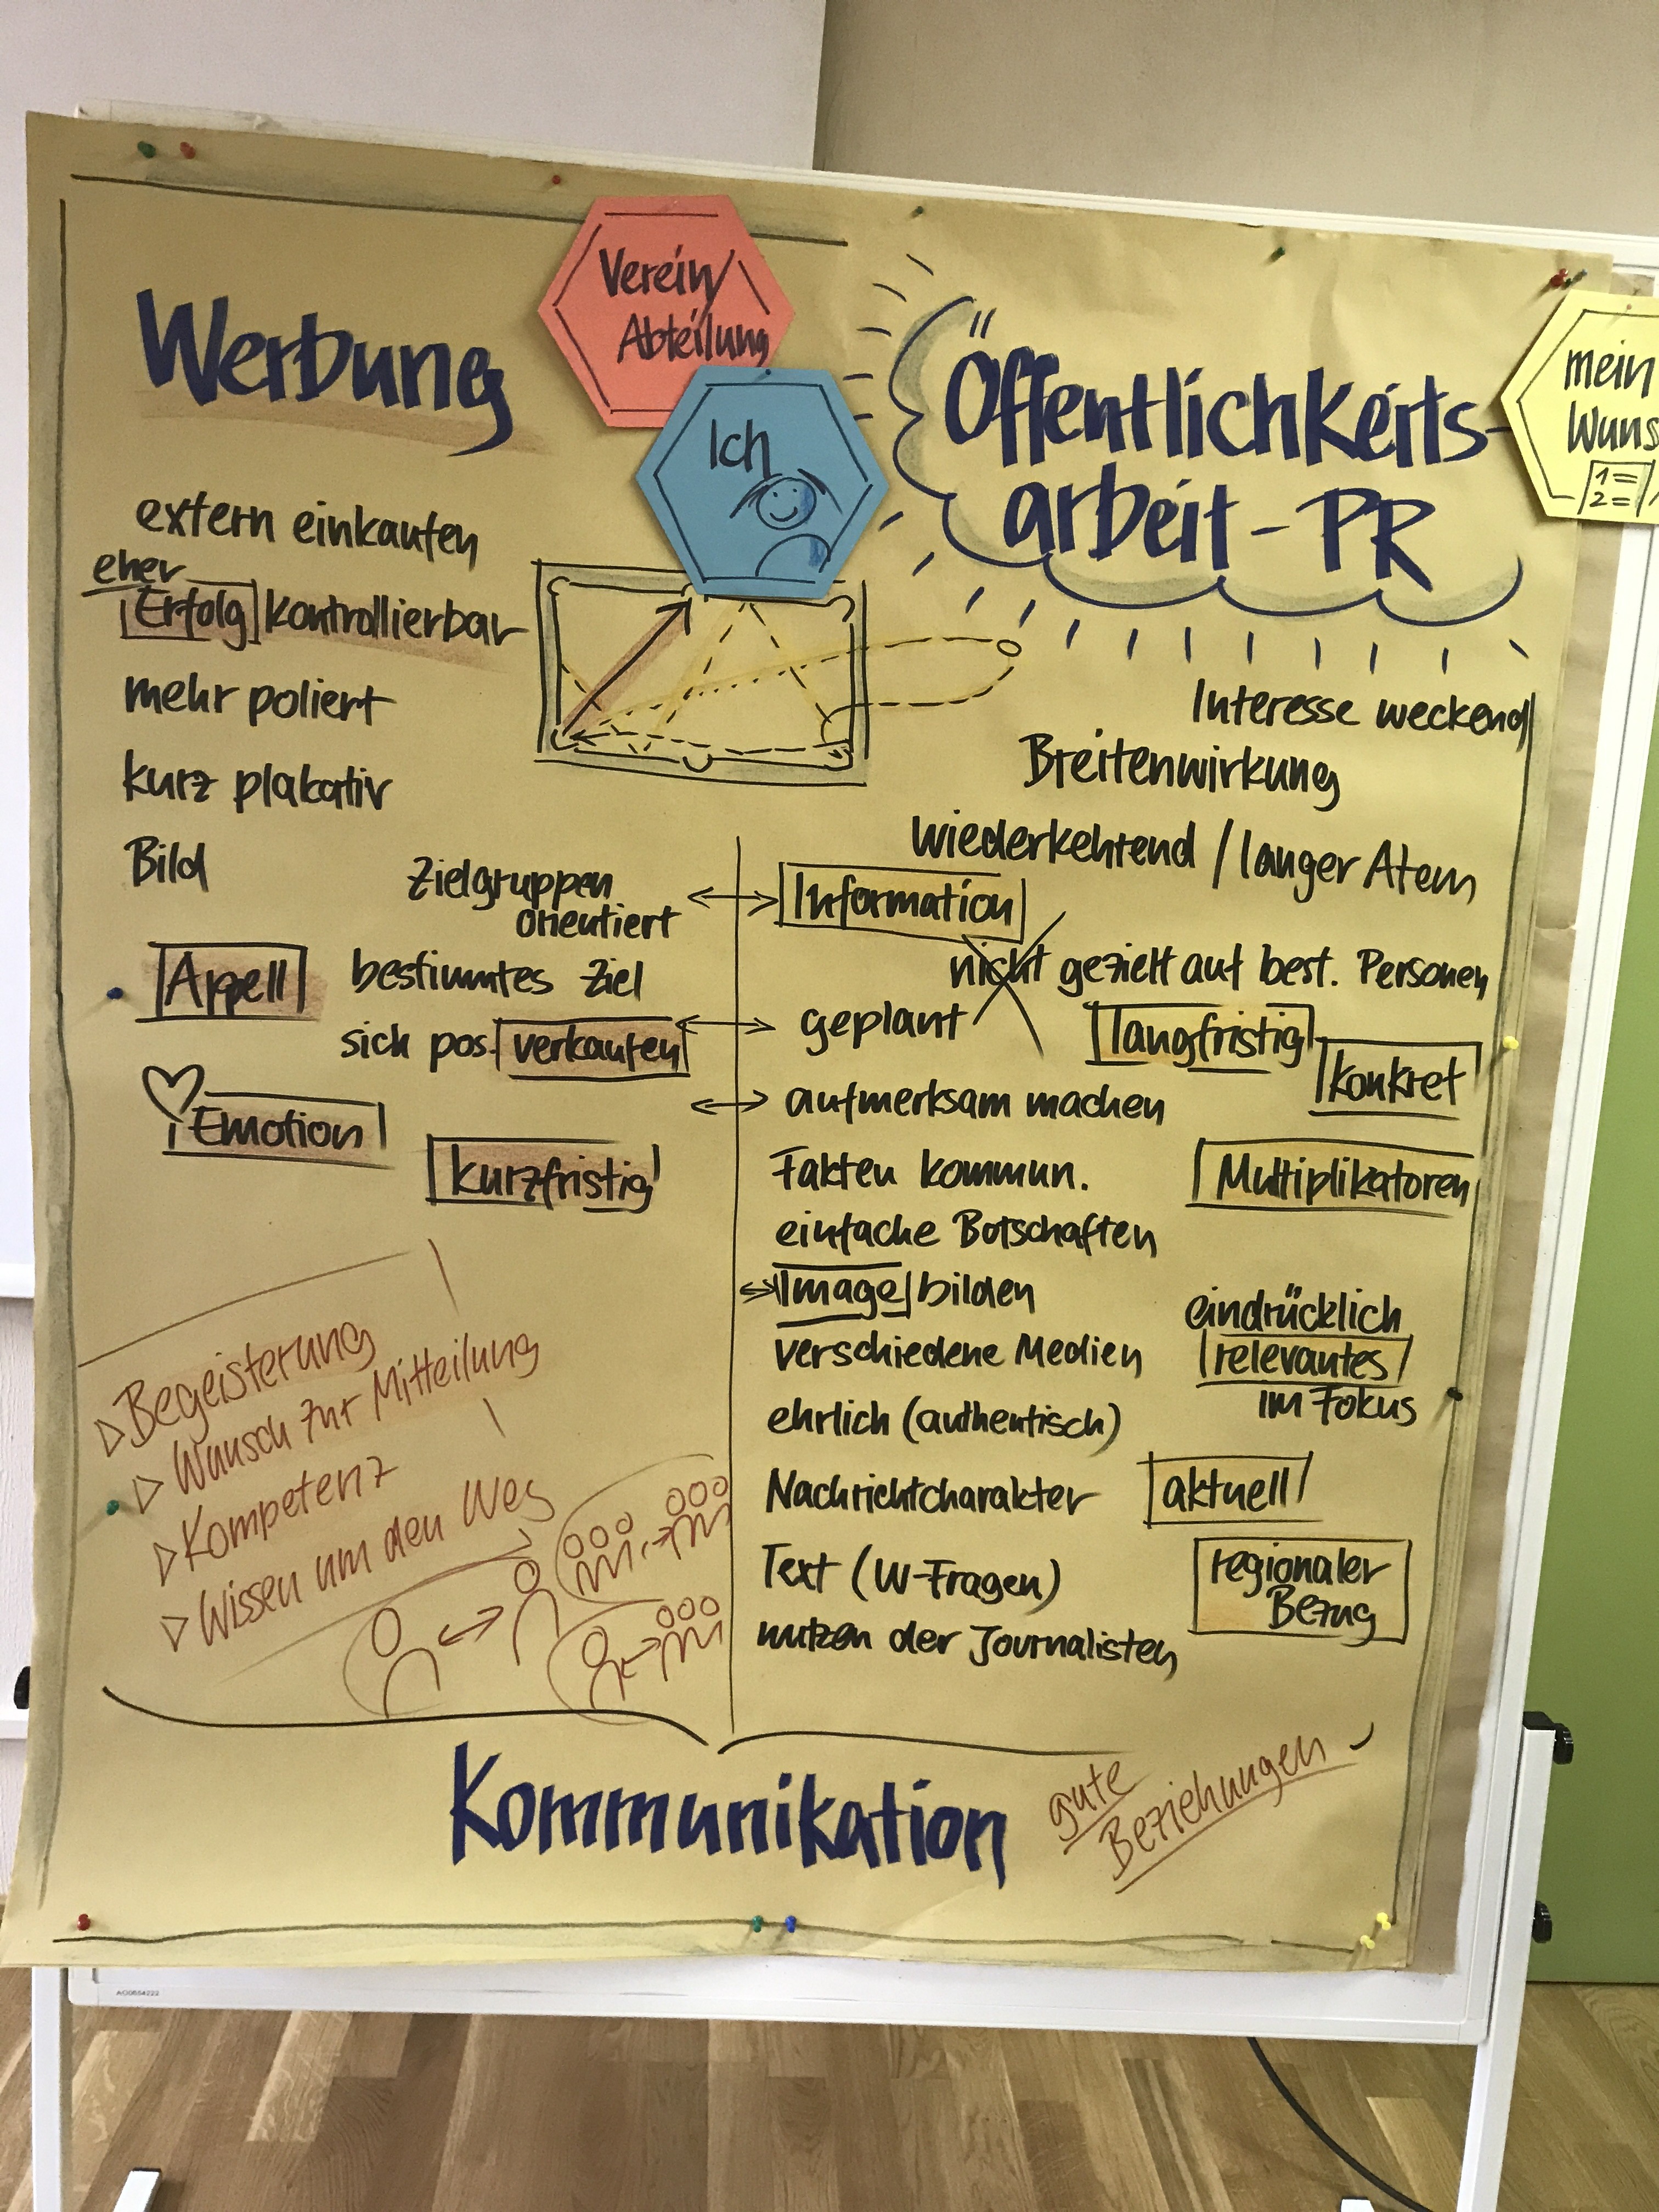 Verein/
Abteilung
Ich
mein
Wuns
1=
2=
Werbung
extern einkaufen
eher
Erfolg kontrollierbar
mehr poliert
kurz plakativ
Bild
Zielgruppen
orientiert
Appell
bestimmtes Ziel
sich pos. verkaufen
Emotion
kurzfristig
Öffentlichkeits-
arbeit - PR
Interesse weckend
Breitenwirkung
wiederkehrend / langer Atem
Information
nicht gezielt auf best. Personen
geplant
langfristig
konkret
aufmerksam machen
Fakten kommun.
Multiplikatoren
einfache Botschaften
Image bilden
eindrücklich
verschiedene Medien
relevantes
im Fokus
ehrlich (authentisch)
Nachrichtcharakter
aktuell
Text (W-Fragen)
regionaler
Bezug
nutzen der Journalisten
Begeisterung
Wunsch zur Mitteilung
Kompetenz
Wissen um den Weg
Kommunikation
gute
Beziehungen